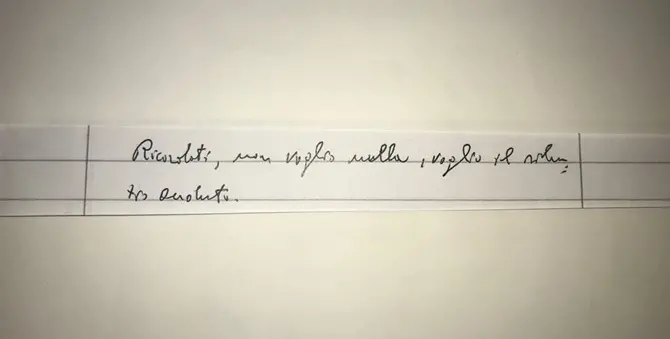 Ricordati, non voglio nulla, voglio il silen=
zio assoluto.